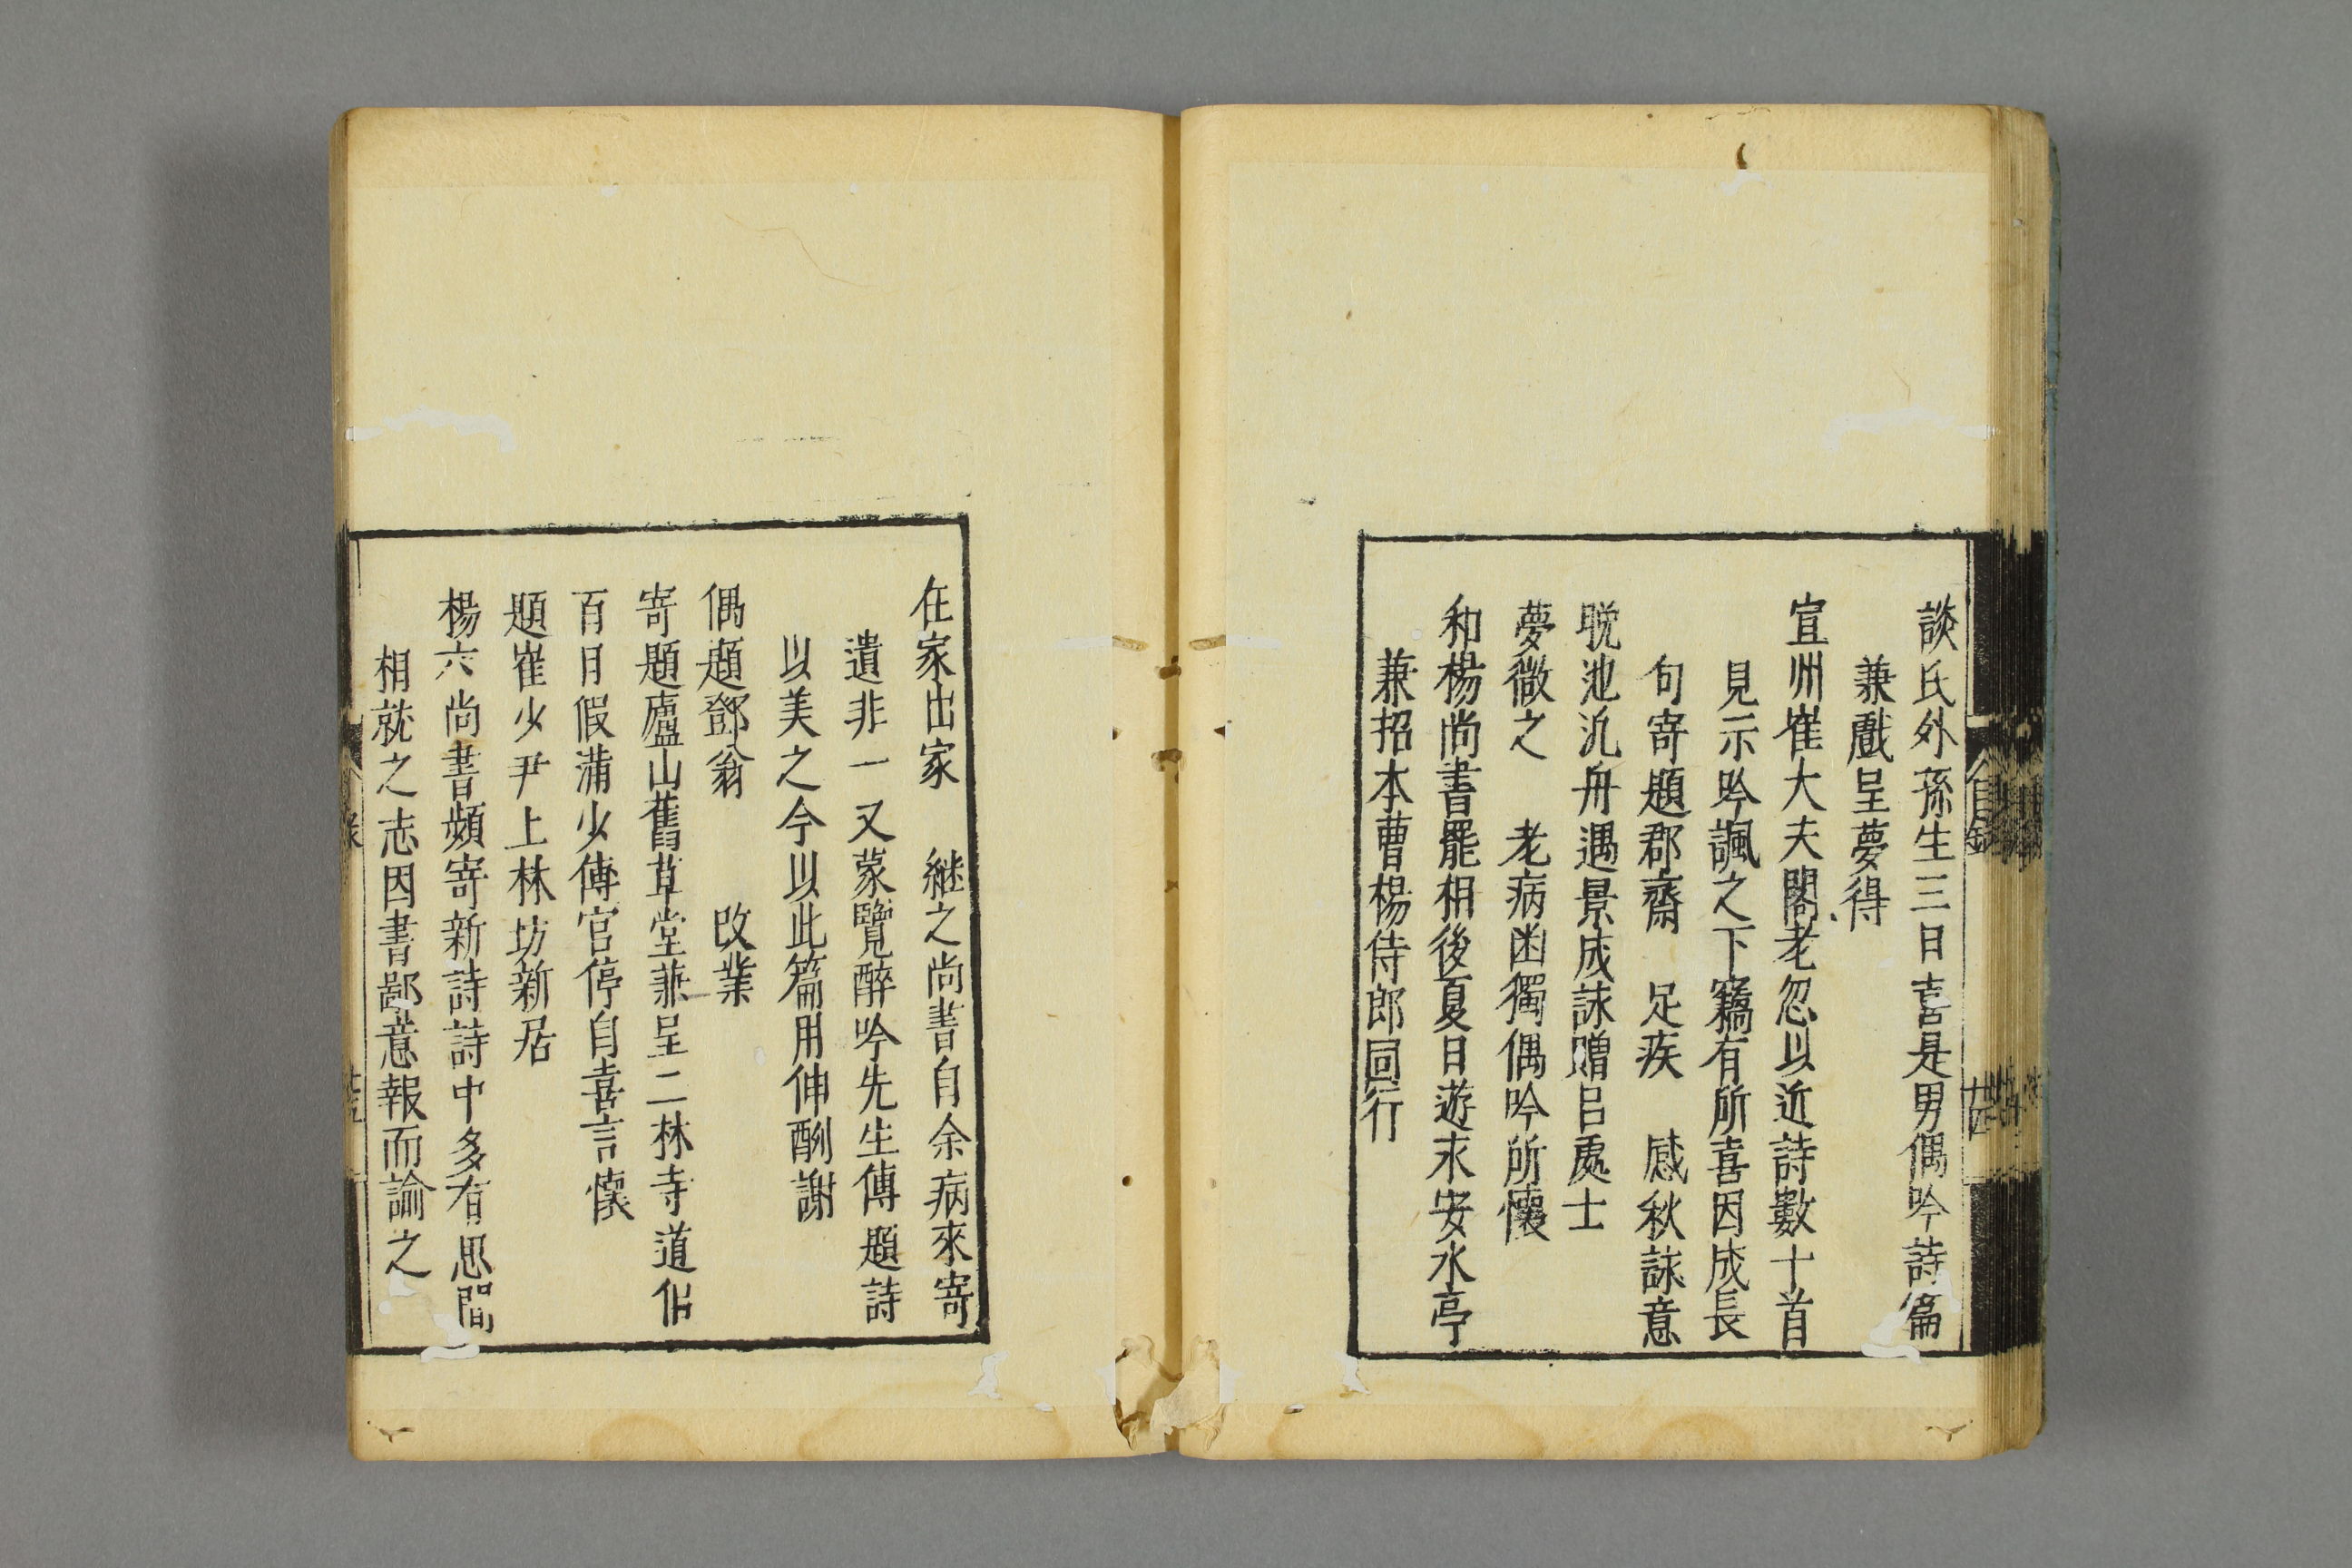 談氏外孫生三日喜是男偶吟詩篇
兼戲呈夢得
宣州崔大夫閣老忽以近詩數十首
見示吟諷之下竊有所喜因成長
句寄題郡齋　足疾　感秋詠意
晚池汎舟遇景成詠贈呂處士
夢微之　老病幽獨偶吟所懷
和楊尚書罷相後夏日遊永安水亭
兼招本曹楊侍郎同行
在家出家　継之尚書自余病來寄
遺非一又蒙覽醉吟先生傳題詩
以美之今以此篇用伸酬謝
偶題鄧翁　改業
寄題廬山舊草堂兼呈二林寺道侶
百日假滿少傅官停自喜言懷
題崔少尹上林坊新居
楊六尚書頻寄新詩詩中多有思閒
相就之志因書鄙意報而諭之